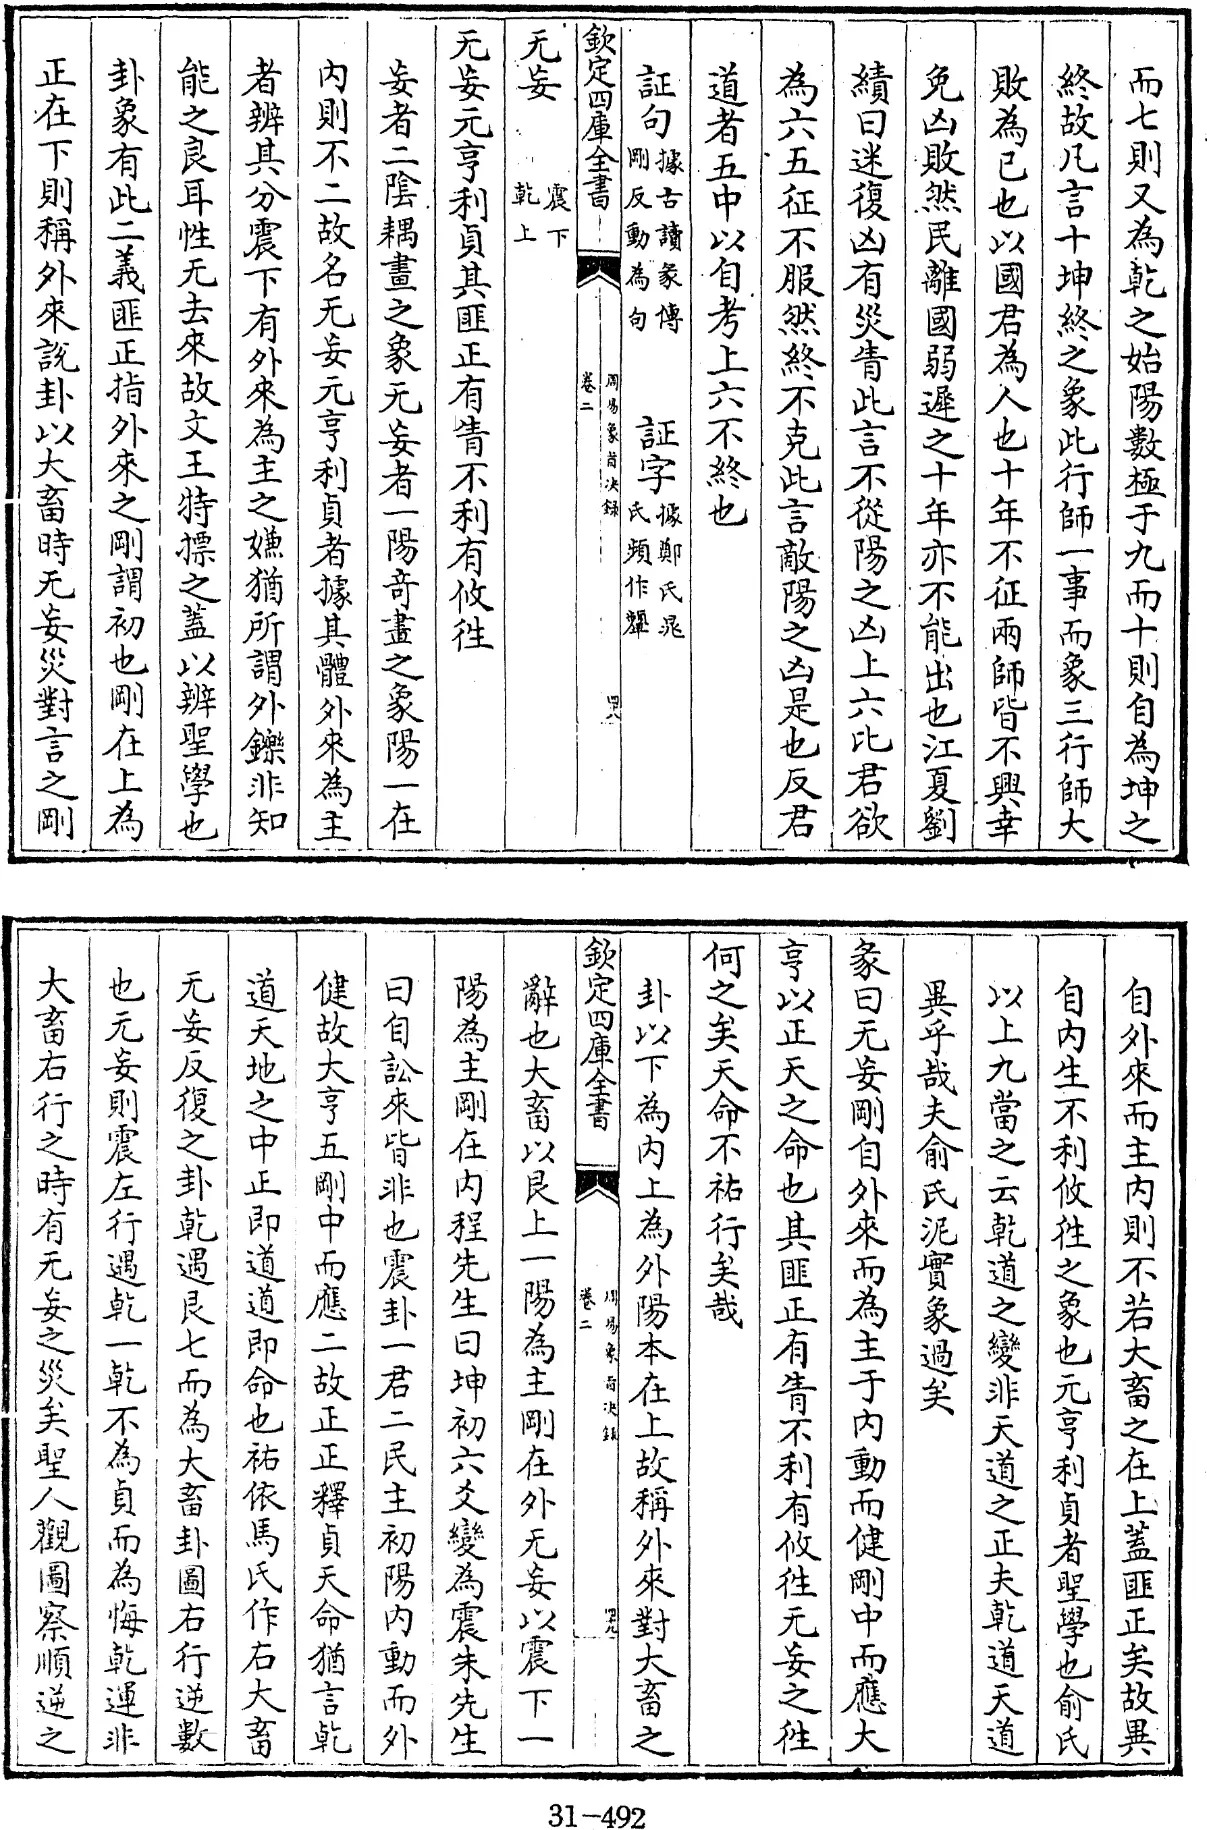 而七則又為乾之始陽數極于九而十則自為坤之
終故凡言十坤終之象此行師一事而象三行師大
敗為已也以國君為人也十年不征兩師皆不興幸
免凶敗然民離國弱遲之十年亦不能出也江夏劉
績曰迷復凶有災眚此言不從陽之凶上六比君欲
為六五征不服然終不克此言敵陽之凶是也反君
道者五中以自考上六不終也
証句據古讀彖傳剛反動為句 証字據鄭氏晁氏頻作顰
欽定四庫全書
周易象旨決錄
卷二
四八
无妄震下乾上
无妄元亨利貞其匪正有眚不利有攸往
妄者二陰耦畫之象无妄者一陽奇畫之象陽一在
內則不二故名无妄元亨利貞者據其體外來為主
者辨其分震下有外來為主之嫌猶所謂外鑠非知
能之良耳性无去來故文王特摽之蓋以辨聖學也
卦象有此二義匪正指外來之剛謂初也剛在上為
正在下則稱外來說卦以大畜時无妄災對言之剛
自外來而主內則不若大畜之在上蓋匪正矣故異
自內生不利攸往之象也元亨利貞者聖學也俞氏
以上九當之云乾道之變非天道之正夫乾道天道
異乎哉夫俞氏泥實象過矣
彖曰无妄剛自外來而為主于內動而健剛中而應大
亨以正天之命也其匪正有眚不利有攸往无妄之往
何之矣天命不祐行矣哉
卦以下為內上為外陽本在上故稱外來對大畜之
欽定四庫全書
周易象旨決錄
卷二
四九
辭也大畜以艮上一陽為主剛在外无妄以震下一
陽為主剛在內程先生曰坤初六爻變為震朱先生
曰自訟來皆非也震卦一君二民主初陽內動而外
健故大亨五剛中而應二故正正釋貞天命猶言乾
道天地之中正即道道即命也祐依馬氏作右大畜
无妄反復之卦乾遇艮七而為大畜卦圖右行逆數
也无妄則震左行遇乾一乾不為貞而為悔乾運非
大畜右行之時有无妄之災矣聖人觀圖察順逆之
31-492